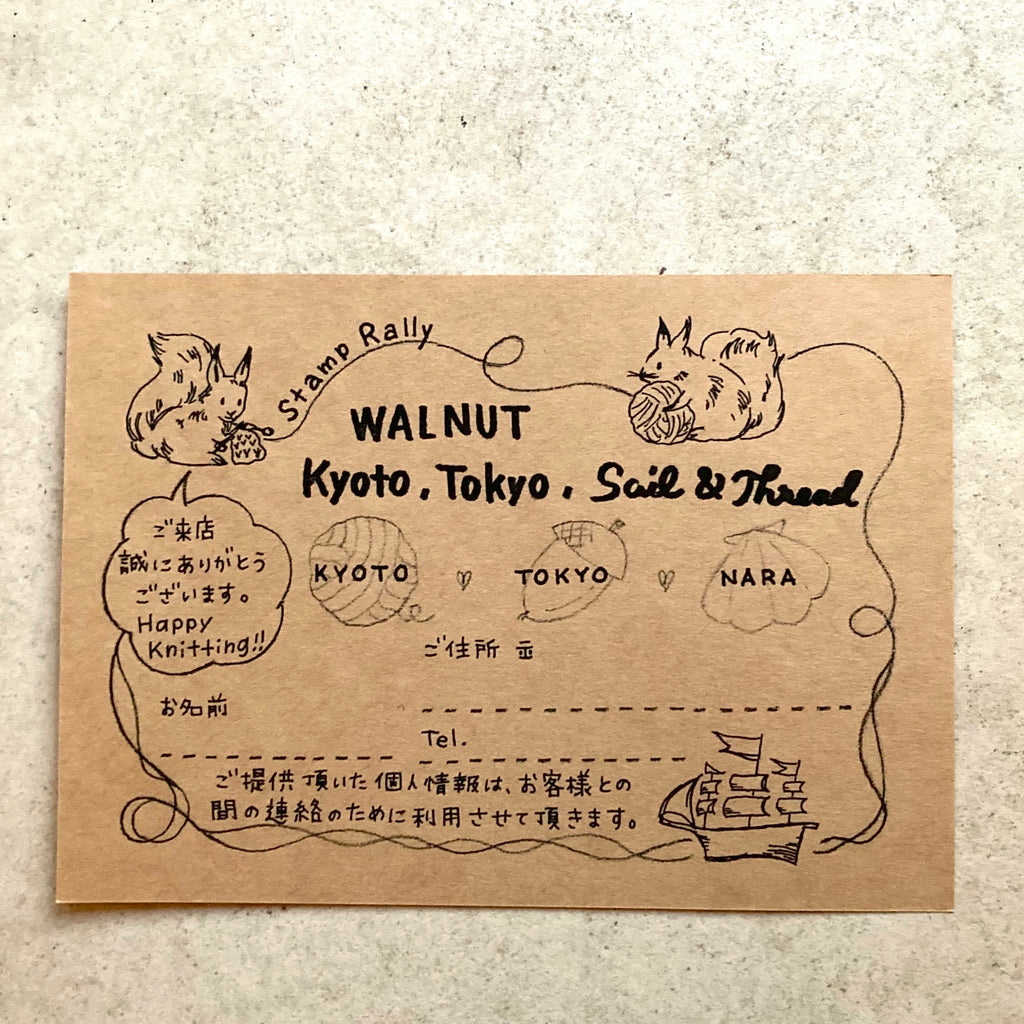 Stamp Rally
WALNUT
Kyoto, Tokyo, Sail & Thread
ご来店
誠にありがとう
ございます。
Happy
Knitting!!
KYOTO
TOKYO
NARA
ご住所 〒
お名前
Tel.
ご提供頂いた個人情報は、お客様との
間の連絡のために利用させて頂きます。